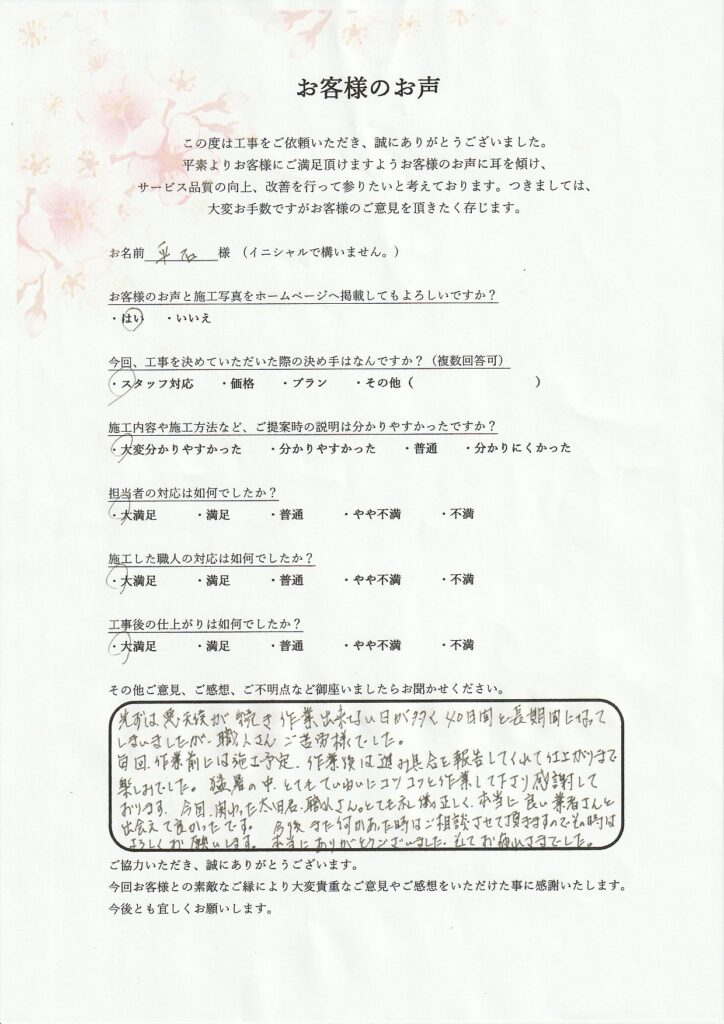 お客様のお声
この度は工事をご依頼いただき、誠にありがとうございました。
平素よりお客様にご満足頂けますようお客様のお声に耳を傾け、
サービス品質の向上、改善を行って参りたいと考えております。つきましては、
大変お手数ですがお客様のご意見を頂きたく存じます。
お名前 平石 様 (イニシャルで構いません。)
お客様のお声と施工写真をホームページへ掲載してもよろしいですか?
・はい ・いいえ
今回、工事を決めていただいた際の決め手はなんですか?(複数回答可)
・スタッフ対応 ・価格 ・プラン ・その他( )
施工内容や施工方法など、ご提案時の説明は分かりやすかったですか?
・大変分かりやすかった ・分かりやすかった ・普通 ・分かりにくかった
担当者の対応は如何でしたか?
・大満足 ・満足 ・普通 ・やや不満 ・不満
施工した職人の対応は如何でしたか?
・大満足 ・満足 ・普通 ・やや不満 ・不満
工事後の仕上がりは如何でしたか?
・大満足 ・満足 ・普通 ・やや不満 ・不満
その他ご意見、ご感想、ご不明点など御座いましたらお聞かせください。
先ずは悪天候が続き作業出来ない日が多く、40日間と長期間になって
しまいましたが、職人さんご苦労様でした。
毎回、作業前には施工予定、作業後は進み具合を報告してくれて仕上がりまで
楽しみでした。猛暑の中、とてもていねいにコツコツと作業して下さり感謝して
おります。今回、関わった太田君、職人さん。とても礼儀正しく、本当に良い業者さんと
出会えて良かったです。今後また何かあった時はご相談させて頂きますのでその時は
よろしくお願いします。本当にありがとうございました。そしてお疲れさまでした。
ご協力いただき、誠にありがとうございます。
今回お客様との素敵なご縁により大変貴重なご意見やご感想をいただけた事に感謝いたします。
今後とも宜しくお願いします。